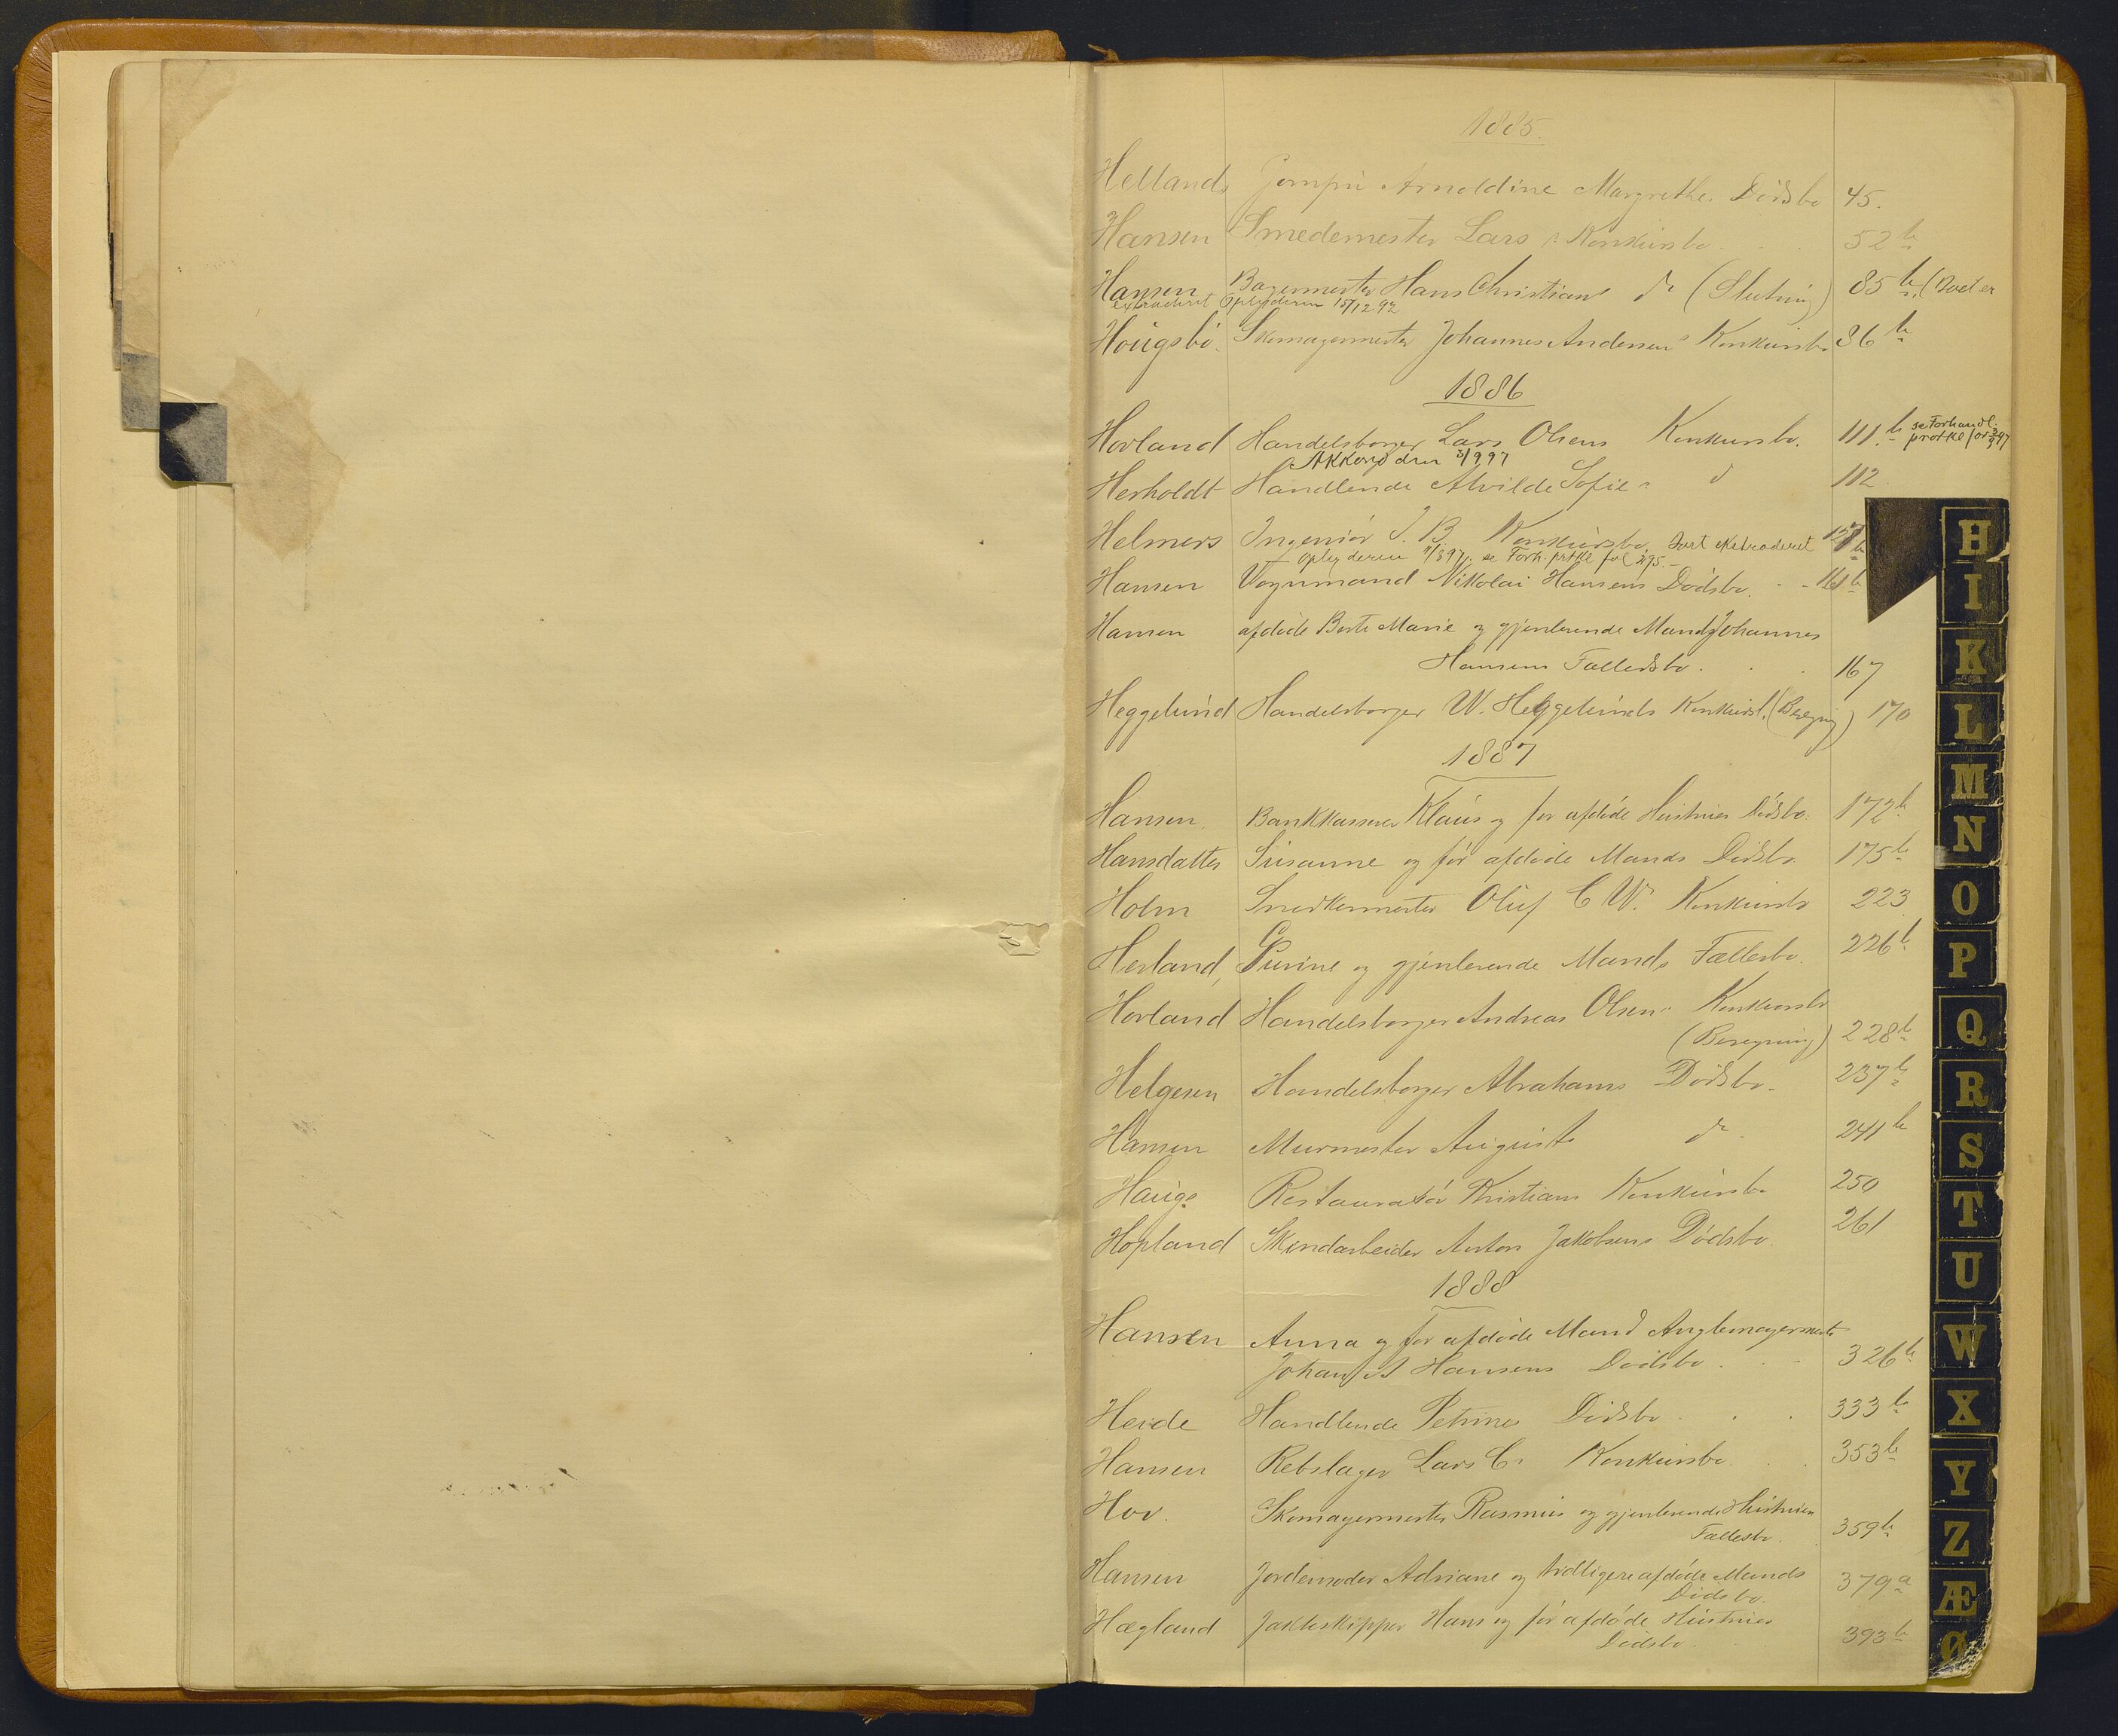 1885.
Hellands Jomfru Arnoldine Margrethe Dödsbo 45.
Hansen Smedemester Lars s. Konkursbo 52 b
Hansen Bagermester Hans Christians do (Slutning) 85 b (Boet er
extraderet Oplyderen 15/12 92
Hougsbö. Skomagermester Johannes Andersens Konkursbo 86 b
1886
Hovland Handelsborger Lars Olsens Konkursbo. 111. b se Forhandl.
Akkord den 3/9 97
Herholdt Handlende Alvilde Sofie s do 112
Helmers Ingeniör J. B. Konkursbo, boet extraderet 127 b
se Forh. protkl fol 295. –
Hansen Vognmand Nikolai Hansens Dödsbo. 161 b
Hansen afdöde Berte Marie og gjenlevende Mand Johannes
Hansens Fælledsbo. 167
Heggelund Handelsborger W. Heggelunds Konkursb. (Begyng) 170
1887
Hansen Bankkasserer Klaus og för afdöde Hustrues Dödsbo. 172 b
Hansdatter Susanne og för afdöde Mands Dödsbo. 175 b
Holm Snedkermester Oluf C W. Konkursbo 223
Herland, Gurine og gjenlevende Mands Fællesbo. 226 b
Hovland Handelsborger Andreas Olsens Konkursbo
228 b
Helgesen Handelsborger Abrahams Dödsbo. 237 b
Hansen Murmester Augusts do 241 b
Hauge Restauratör Kristians Konkursbo 250
Hopland Skindarbeider Anton Jakobsens Dödsbo. 261
1888
Hansen Anna og för afdöde Mand
Johan A Hansens Dödsbo 326 b
Heide Handlende Petrines Dödsbo 333 b
Hansen Rebslager Lars C. Konkursbo. 353 b
Hov. Skomagermester Rasmus og gjenlevende Hustrues
Fællesbo. 359 b
Hansen Jordemoder Adriane og tidligere afdöde Mands
Dödsbo. 379 a
Hægland Jakteskipper Hans og för afdöde Hustrues
Dödsbo. 393 b
H
I
K
L
M
N
O
P
Q
R
S
T
U
W
X
Y
Z
Æ
Ø